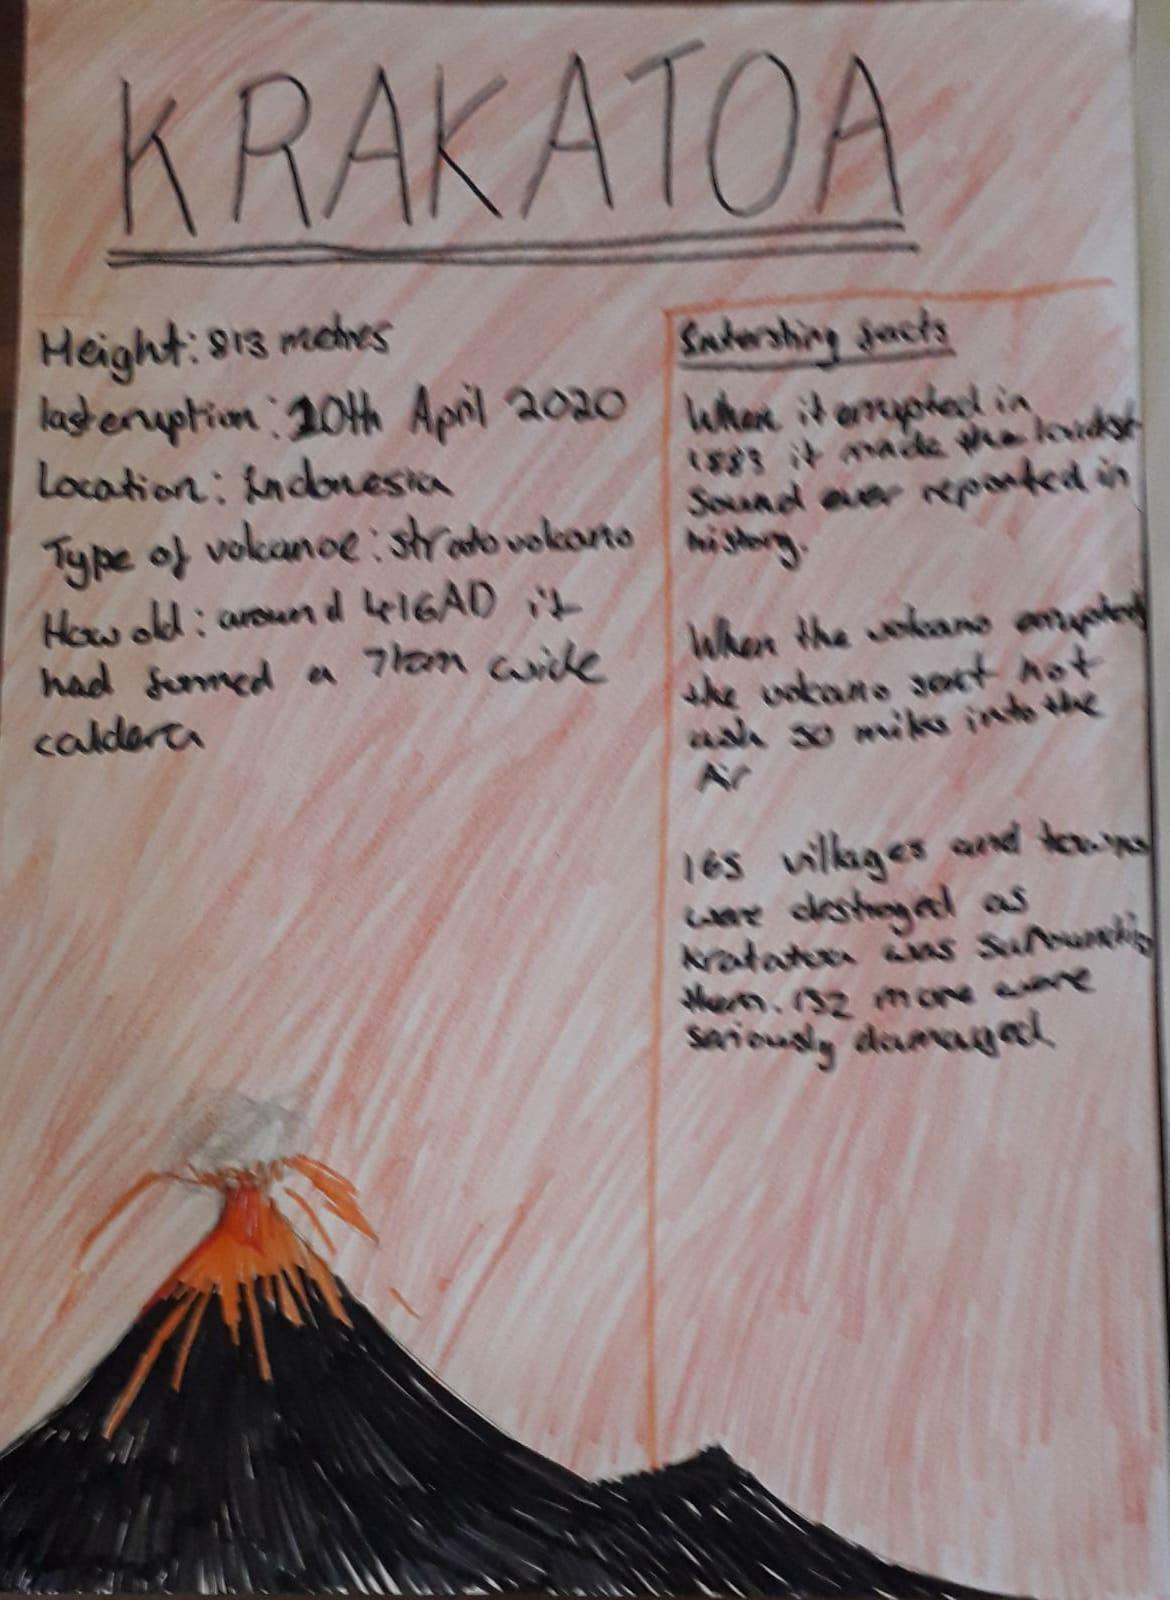 KRAKATOA
Height: 813 metres
last eruption: 10th April 2020
Location: Indonesia
Type of volcanoe: stratovolcano
How old: around 416AD it
had formed a 7km wide
caldera
Intersting facts
When it errupted in
1883 it made the loudest
Sound ever reported in
history.
When the volcano errupted
the volcano sent hot
ash 50 miles into the
Air
165 villages and towns
were destroyed as
Kratatoa was
them. 132 more were
seriously damaged.